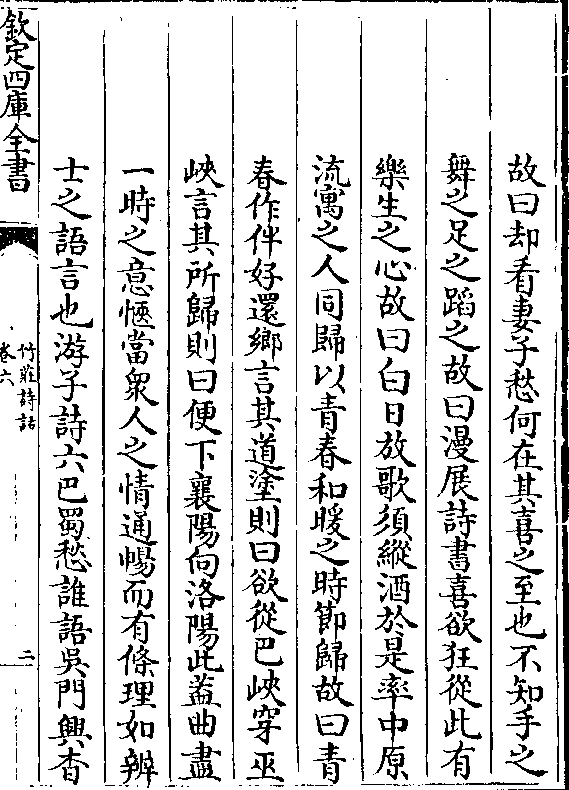 故曰却看妻子愁何在其喜之至也不知手之
舞之足之蹈之故曰漫展詩書喜欲狂從此有
樂生之心故曰白日放歌須縱酒於是率中原
流寓之人同歸以青春和暖之時節歸故曰青
春作伴好還鄉言其道塗則曰欲從巴峽穿巫
峽言其所歸則曰便下襄陽向洛陽此蓋曲盡
一時之意愜當衆人之情通暢而有條理如辨
士之語言也游子詩六巴蜀愁誰語吳門興杳
欽定四庫全書
竹莊詩話
卷六
二